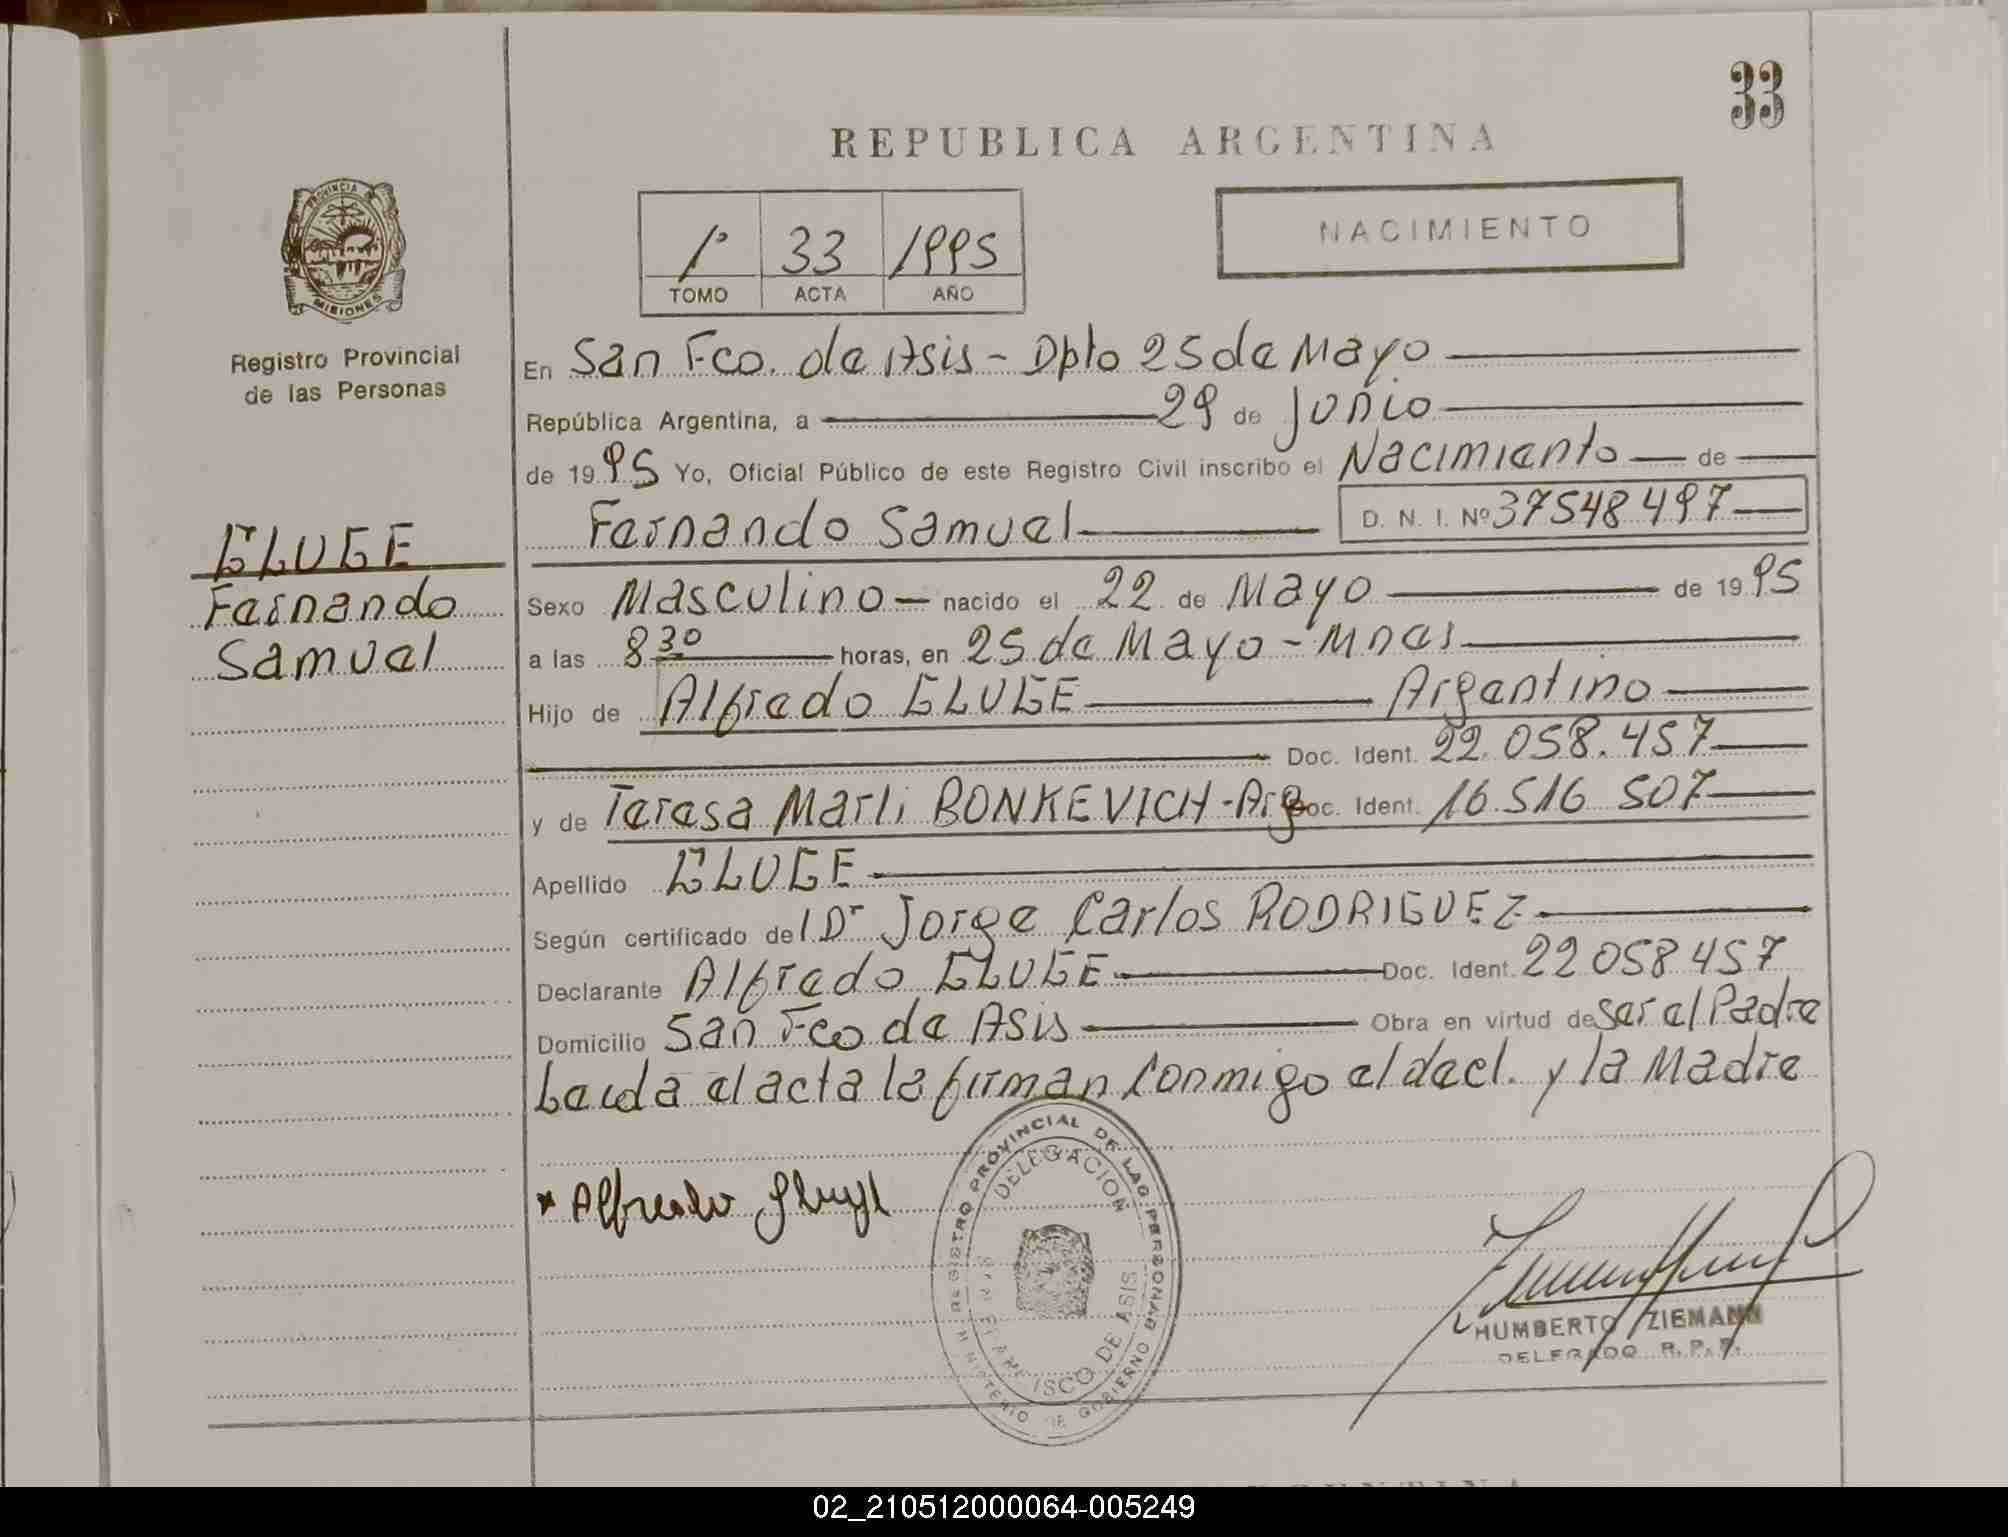 33
REPUBLICA ARGENTINA
PROVINCIA DE
MISIONES
1º 33 1995
TOMO ACTA AÑO
NACIMIENTO
Registro Provincial
de las Personas
GLUGE
Fernando
Samuel
En San Fco. de Asis - Dpto 25 de Mayo
República Argentina, a 29 de Junio
de 1995 Yo, Oficial Público de este Registro Civil inscribo el Nacimiento de
Fernando Samuel D. N. I. Nº 37548497
Sexo Masculino nacido el 22 de Mayo de 1995
a las 8 30 horas, en 25 de Mayo - Mnes
Hijo de Alfredo GLUGE Argentino
Doc. Ident. 22.058.457
y de Teresa Marli BONKEVICH - Arg Doc. Ident. 16.516 507
Apellido GLUGE
Según certificado del Dr Jorge Carlos RODRIGUEZ
Declarante Alfredo GLUGE Doc. Ident. 22 058 457
Domicilio San Fco de Asis Obra en virtud de ser el Padre
Leida el acta la firman conmigo el decl. y la Madre
* Alfredo
REGISTRO PROVINCIAL DE LAS PERSONAS
MINISTERIO DE GOBIERNO
DELEGACION
SAN FRANCISCO DE ASIS
HUMBERTO ZIEMANN
DELEGADO R. P. P.
02_210512000064-005249